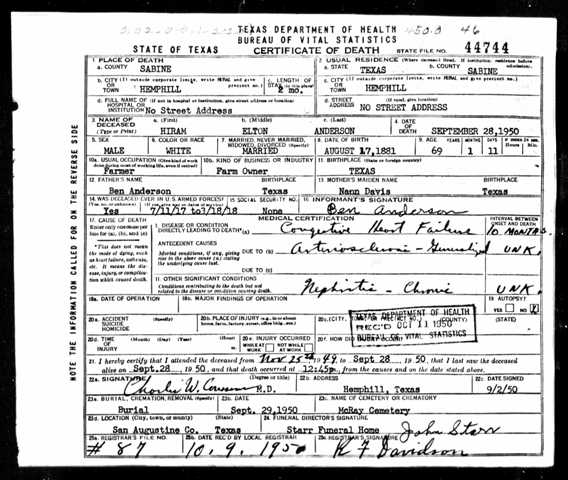 TEXAS DEPARTMENT OF HEALTH
BUREAU OF VITAL STATISTICS
46
STATE OF TEXAS CERTIFICATE OF DEATH STATE FILE NO. 44744
1. PLACE OF DEATH
a. COUNTY SABINE
2. USUAL RESIDENCE (Where deceased lived. If institution, residence before admission)
a. STATE TEXAS b. COUNTY SABINE
b. CITY (If outside corporate limits, write RURAL and give precinct no.) OR TOWN HEMPHILL
c. LENGTH OF STAY
c. CITY (If outside corporate limits, write RURAL and give precinct no.) OR TOWN HEMPHILL
d. FULL NAME OF HOSPITAL OR INSTITUTION (If not in hospital or institution, give street address or location) No Street Address
d. STREET ADDRESS (If rural, give location) NO STREET ADDRESS
3. NAME OF DECEASED (Type or Print) a. (First) HIRAM b. (Middle) ELTON c. (Last) ANDERSON
4. DATE OF DEATH SEPTEMBER 28,1950
5. SEX MALE
6. COLOR OR RACE WHITE
7. MARRIED, NEVER MARRIED, WIDOWED, DIVORCED (Specify) MARRIED
8. DATE OF BIRTH AUGUST 17,1881
9. AGE 69 1 11
10a. USUAL OCCUPATION Farmer
10b. KIND OF BUSINESS OR INDUSTRY Farm Owner
11. BIRTHPLACE (State or foreign country) TEXAS
12. FATHER'S NAME Ben Anderson BIRTHPLACE Texas
13. MOTHER'S MAIDEN NAME Nann Davis BIRTHPLACE Texas
14. WAS DECEASED EVER IN U.S. ARMED FORCES? Yes
15. SOCIAL SECURITY NO. None
16. INFORMANT'S SIGNATURE Ben Anderson
17. CAUSE OF DEATH MEDICAL CERTIFICATION INTERVAL BETWEEN ONSET AND DEATH
I. DISEASE OR CONDITION DIRECTLY LEADING TO DEATH (a) Congestive Heart Failure 10 MONTHS
ANTECEDENT CAUSES
DUE TO (b) Arteriosclerosis - Generalized UNK.
DUE TO (c)
II. OTHER SIGNIFICANT CONDITIONS
Conditions contributing to the death but not related to the disease or condition causing death. Nephritis - Chronic UNK.
*This does not mean the mode of dying, such as heart failure, asthenia, etc. It means the disease, injury, or complication which caused death.
18a. DATE OF OPERATION
18b. MAJOR FINDINGS OF OPERATION
19. AUTOPSY? YES NO
20a. ACCIDENT SUICIDE HOMICIDE
20b. PLACE OF INJURY (e.g., in or about home, farm, factory, street, office bldg., etc.)
20c. (CITY, TOWN, OR PRECINCT NO.) (COUNTY) (STATE)
20d. TIME OF INJURY
20e. INJURY OCCURRED WHILE AT WORK NOT WHILE AT WORK
20f. HOW DID INJURY OCCUR?
TEXAS DEPARTMENT OF HEALTH
REC'D OCT 11 1950
BUREAU OF VITAL STATISTICS
21. I hereby certify that I attended the deceased from Nov 25th 1949, to Sept 28 1950, that I last saw the deceased
alive on Sept.28 1950, and that death occurred at 12:45pm, from the causes and on the date stated above.
22a. SIGNATURE (Degree or title)
22b. ADDRESS Hemphill, Texas
22c. DATE SIGNED 9/2/50
23a. BURIAL, CREMATION, REMOVAL (Specify) Burial
23b. DATE Sept. 29,1950
23c. NAME OF CEMETERY OR CREMATORY McRay Cemetery
23d. LOCATION (City, town, or county) (State) San Augustine Co. Texas
24. FUNERAL DIRECTOR'S SIGNATURE Starr Funeral Home John Starr
25a. REGISTRAR'S FILE NO. # 87
25b. DATE REC'D BY LOCAL REGISTRAR 10.9.1950
25c. REGISTRAR'S SIGNATURE R F Davidson
NOTE THE INFORMATION CALLED FOR ON THE REVERSE SIDE